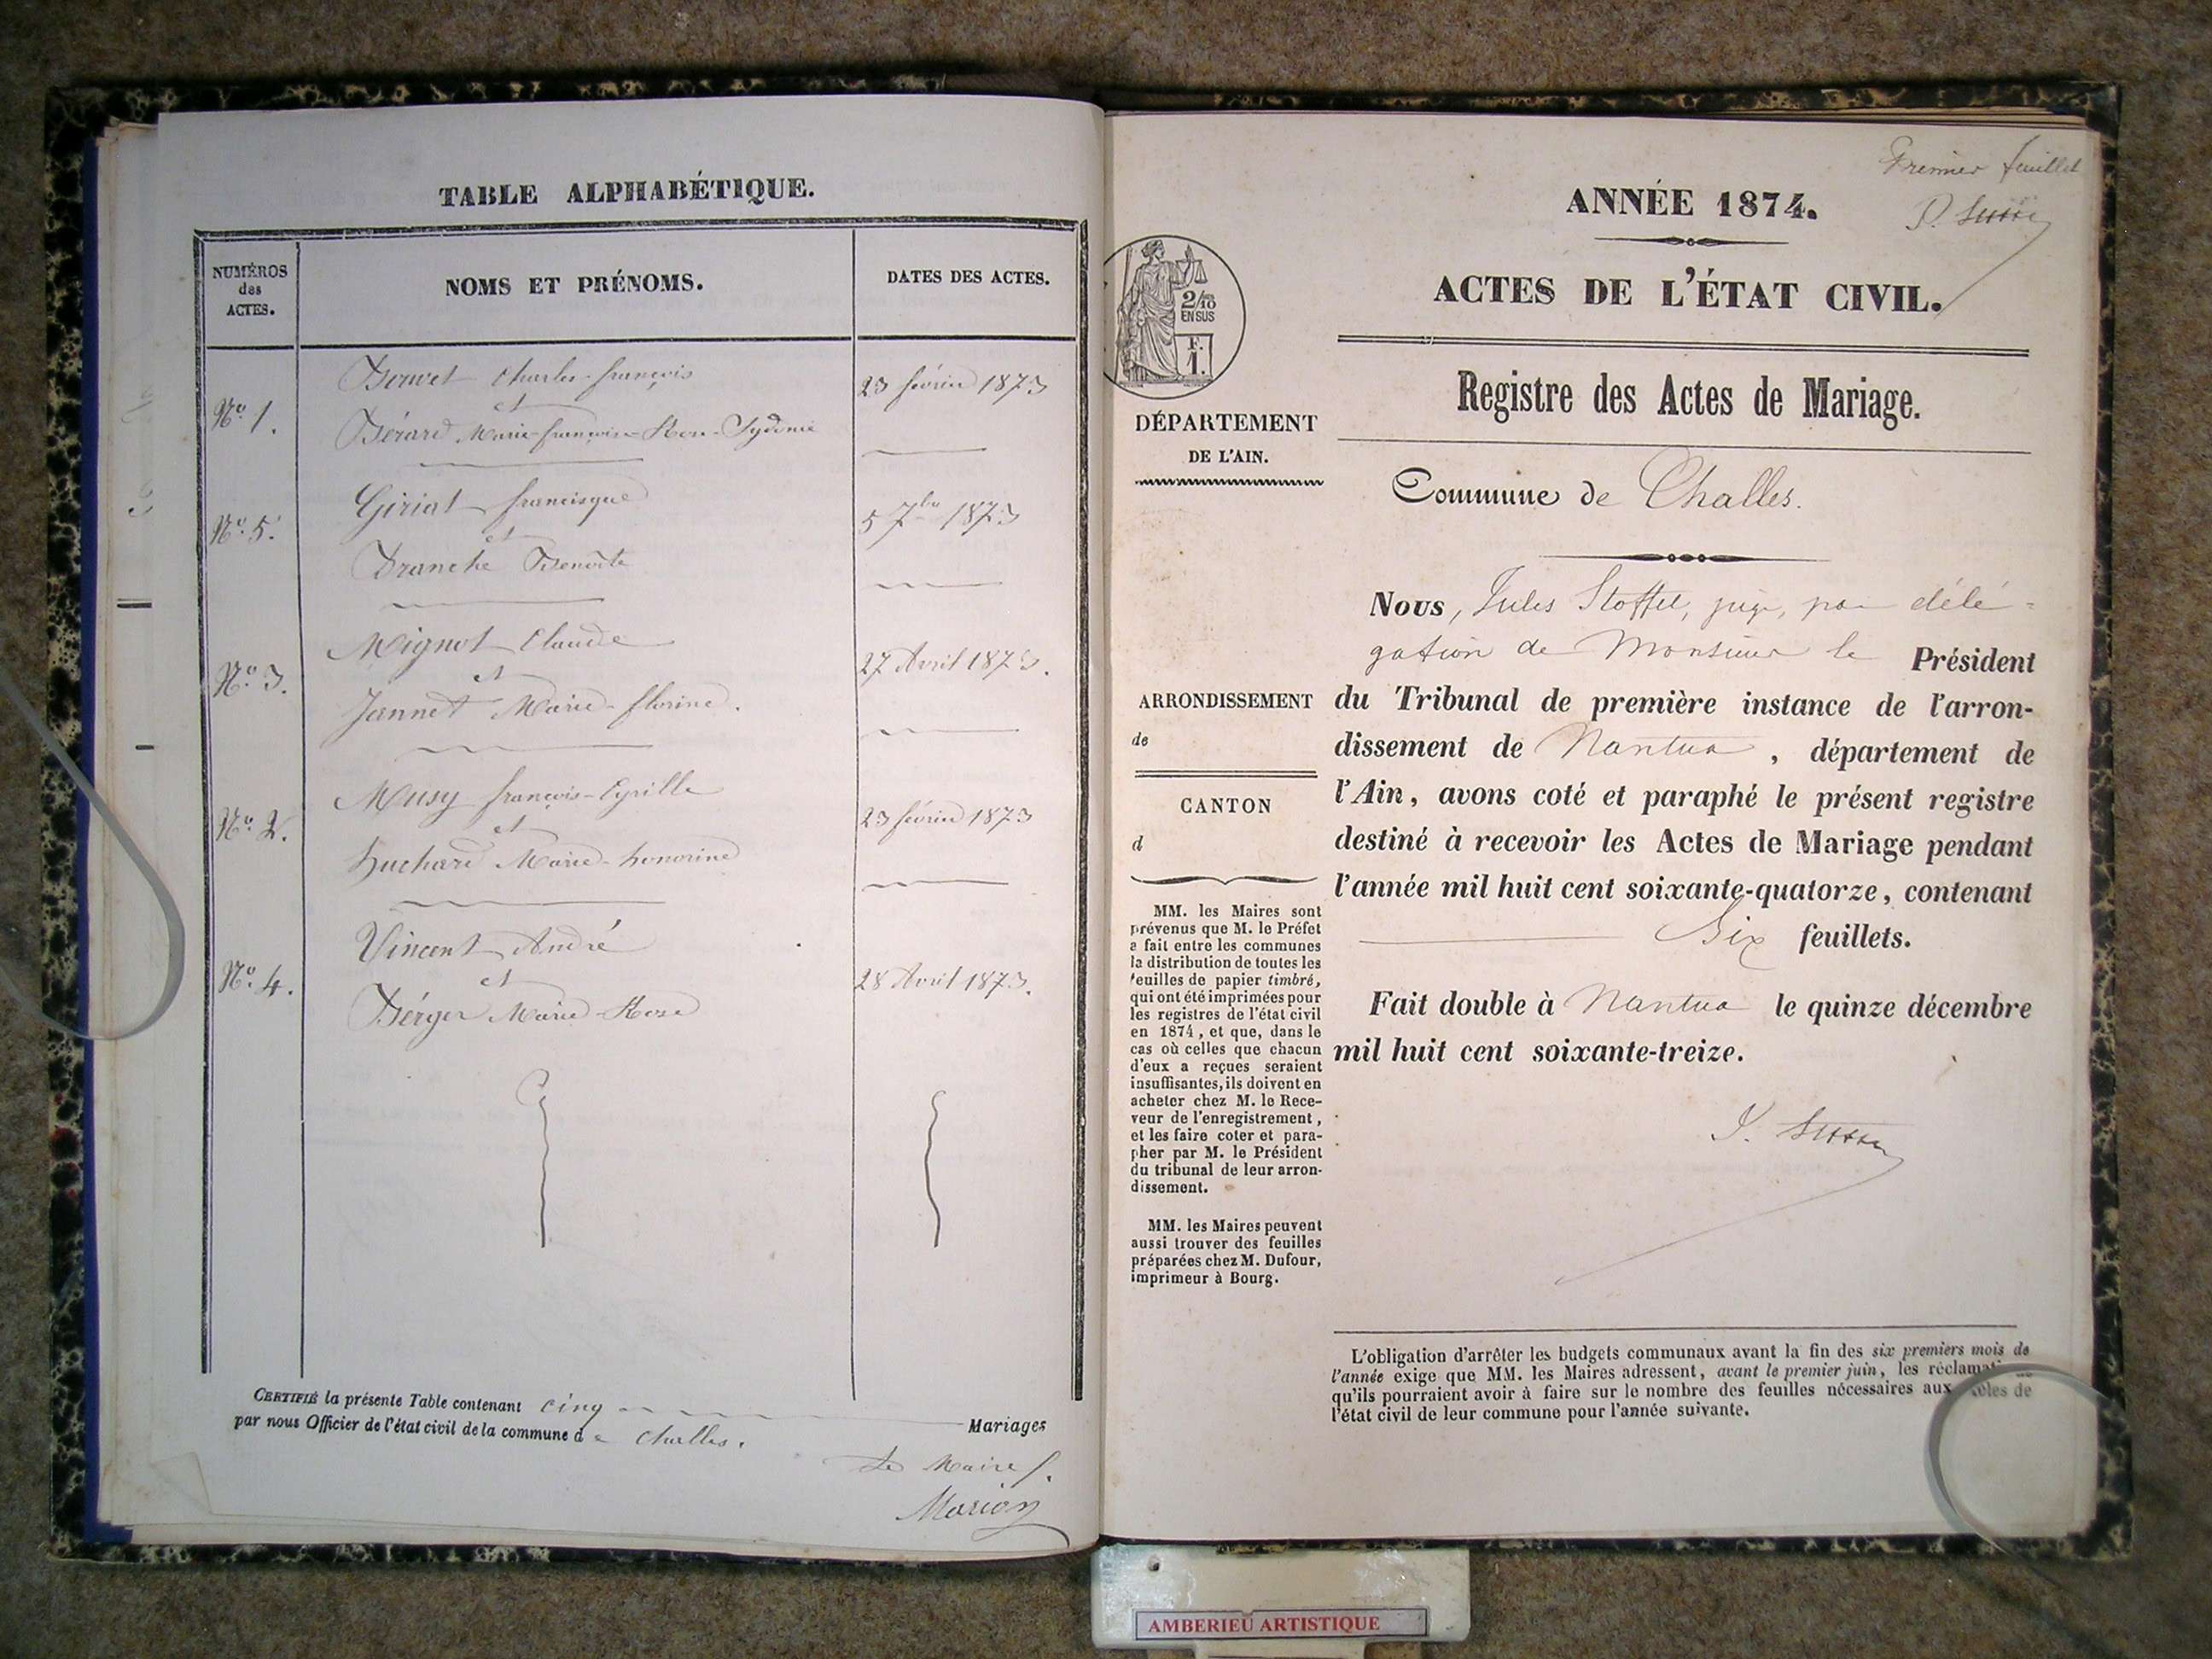 TABLE ALPHABÉTIQUE.
NUMÉROS
des
ACTES.
NOMS ET PRÉNOMS.
DATES DES ACTES.
Nº 1.
Charles-françois
et
Bérard Marie-françoise-Rose-Sydonie
23 février 1873
Nº 5.
Giriat francisque
et
Branche Benoîte
5 7bre 1873
Nº 3.
Mignot Claude
et
Jannet Marie-florine.
27 Avril 1873.
Nº 2.
Musy françois-Cyrille
et
huchard Marie-honorine
23 février 1873
Nº 4.
Vincent André
et
Bérger Marie-Rose
28 Avril 1873.
CERTIFIÉ la présente Table contenant cinq Mariages
par nous Officier de l'état civil de la commune de Challes.
Le Maire
Marion
Premier feuillet
ANNÉE 1874.
ACTES DE L'ÉTAT CIVIL.
2/10
EN SUS
F.
1.
Registre des Actes de Mariage.
DÉPARTEMENT
DE L'AIN.
Commune de Challes.
Nous, Jules Stoffel, juge, par délé-
gation de Monsieur le Président
du Tribunal de première instance de l'arron-
dissement de Nantua, département de
l'Ain, avons coté et paraphé le présent registre
destiné à recevoir les Actes de Mariage pendant
l'année mil huit cent soixante-quatorze, contenant
Six feuillets.
Fait double à Nantua le quinze décembre
mil huit cent soixante-treize.
ARRONDISSEMENT
de
CANTON
d
MM. les Maires sont
prévenus que M. le Préfet
a fait entre les communes
la distribution de toutes les
feuilles de papier timbré,
qui ont été imprimées pour
les registres de l'état civil
en 1874, et que, dans le
cas où celles que chacun
d'eux a reçues seraient
insuffisantes, ils doivent en
acheter chez M. le Rece-
veur de l'enregistrement,
et les faire coter et para-
pher par M. le Président
du tribunal de leur arron-
dissement.
MM. les Maires peuvent
aussi trouver des feuilles
préparées chez M. Dufour,
imprimeur à Bourg.
L'obligation d'arrêter les budgets communaux avant la fin des six premiers mois de
l'année exige que MM. les Maires adressent, avant le premier juin, les
qu'ils pourraient avoir à faire sur le nombre des feuilles nécessaires aux de
l'état civil de leur commune pour l'année suivante.
AMBERIEU ARTISTIQUE